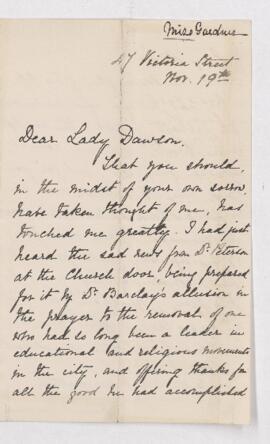 Miss Gardner
47 Victoria Street
Nov. 19th
Dear Lady Dawson,
That you should,
in the midst of your own sorrow,
have taken thought of me, has
touched me greatly. I had just
heard the sad news from Dr Peterson
at the Church door, being prepared
for it by Dr Barclay's allusion in
the prayer to the removal of one
who had so long been a leader in
educational and religious movements
in the city, and offering thanks for
all the good he had accomplished